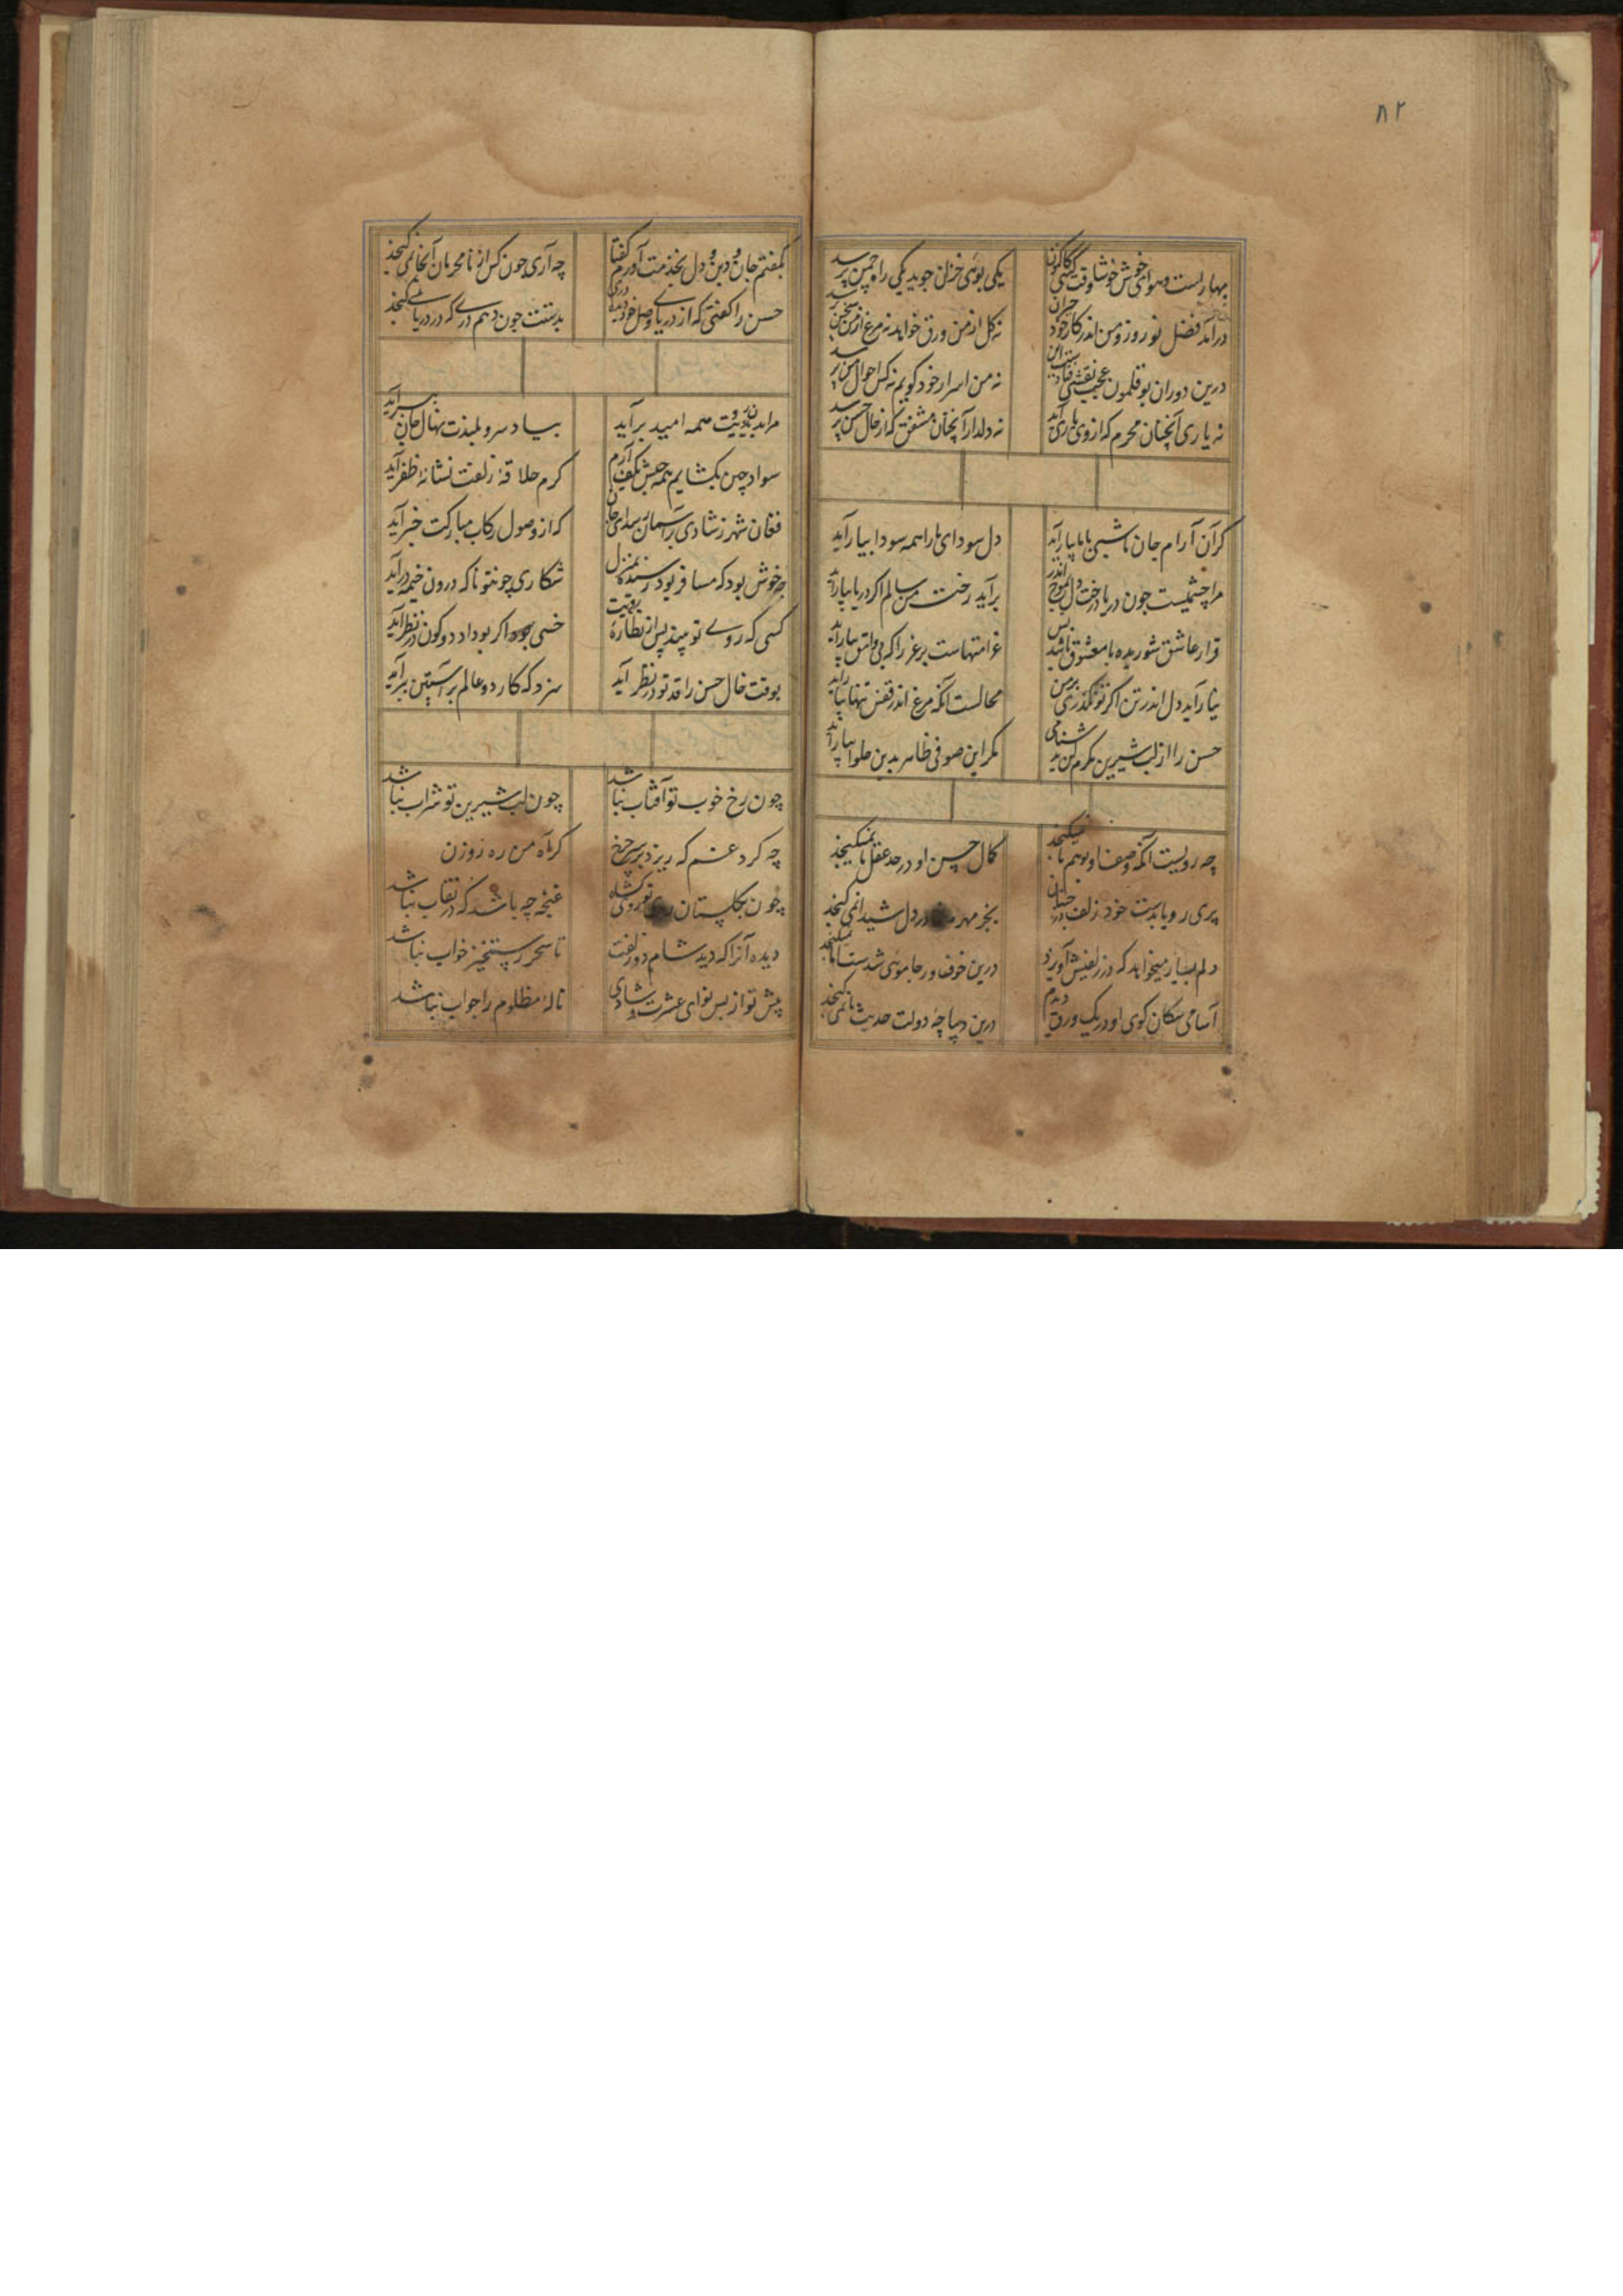 ۸۲
بهارست و هوای خوش خوشا وقت کسی کاکنون
یکی بوی خزان جوید یکی راه چمن پرسد
درآمد فصل نوروز و من اندر کار خود حیران
نه گل از من ورق خواهد نه مرغ از من سخن پرسد
درین دوران بوقلمون عجب نقشی فتادست این
نه من اسرار خود گویم نه کس احوال من پرسد
نه یاری آنچنان محرم که از وی یاری آید
نه دلدار آنچنان مشفق که از حال حسن پرسد
گر آن آرام جان ما شبی با ما بیارآید
دل سودای ما را همه سودا بیارآید
مرا چشمیست چون دریا درخت دل الموج اندر
برآید رخت من سالم اگر دریا بیارآید
قرار عاشق شوریده با معشوق باشد بس
غرامتهاست بر عذرا که بی وامق بیارآید
بیارآید دل اندر تن اگر تو نگذری بر من
محالست آنکه مرغ اندر قفس تنها بیارآید
حسن را از لب شیرین مکرم کن به دشنامی
مگر این صوفی ظاهر بدین حلوا بیارآید
چه رویست آنکه وصف او بوهم ما نمیگنجد
کمال حسن او در حد عقل ما نمیگنجد
پری رویا بدست خود ز زلف در جنان
بجز مهر در دل شیدا نمی گنجد
دلم بسیار میخواهد که در زلفیش آویزد
درین خوف و رجا مویی شدست اما نمیگنجد
اسامی سگان کوی او در یک ورق دیدم
درین دیباچهٔ دولت حدیث ما نمی گنجد
بگفتم جان و دین و دل بخدمت آورم گفتا
چه آری چون کس از نامحرمان آنجا نمی گنجد
حسن را گفتی که از دریای وصل خود دری دیده
بدستت چون دهم دری که در دریا نمی گنجد
مرا بدیدن رویت همه امید برآید
بیاد سرو بلندت نهال جان ببرآید
سواد چین بگشایم همه حبش بکف آرم
گرم علاقهٔ زلفت نشانهٔ ظفر آید
فغان شهر ز شادی بر آسمان بمدای جان
که از وصول رکاب مبارکت خبر آید
چه خوش بود که مسافر بود رسنده بمنزل
شکاری چو تو ناگه درون خیمه درآید
کسی که روی تو بیند پس از نظارهٔ رویت
خسی بود اگر بود او دو کون در نظر آید
بوقت خال حسن را قد تو در نظر آید
سزد که کار دو عالم بر آستین برآید
چون رخ خوب تو آفتاب نباشد
چون لب شیرین تو شراب نباشد
چه کرد غم که ریزد بر سر چرخ
گر به آه من ره زوزن
چون بگلستان روی تو بر وی گشاد
غنچه چه باشد که در نقاب نباشد
دیده آنرا که دید شام دو زلفت
تا سحر رستخیز خواب نباشد
پیش تو از بس نوای عشرت و شادی
نالهٔ مظلوم را جواب نباشد